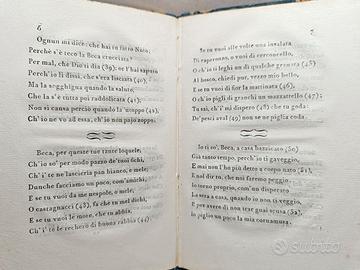 6
Ognun mi dice, che hai tu fatto Nato,
Perchè s'è teco la Beca crucciata?
Per mal, che Dio ti dia (39); or l'hai saputo
Perch'io li dissi, che s'era lisciata (40).
Ma la sogghigna quando la saluto,
Che la s'è tutta poi raddolcita (41).
Non si cansa perciò quando la
Ch'io ne vo all' essa, ch'io non pajo zoppo.
Beca, per queste tue tante loquele,
Ch'io so' per modo pazzo de' tuoi fichi,
Ch'i' te lascieria pan bianco, e mele,
Dunche facciamo un poco, com'amichi,
E se tu vuoi da me nespole, o mele,
O castagnacci (43), fa che tu dichi,
E se tu vuoi le more, che tu rabbia,
Ch'i' te le recherò di buona rabbia (44).
7
Io tu vuoi alle volte una insalata
Di raperonzo, o vuoi de' cerconcelli,
O ch'io ti leghi un di qualche granata (45)
Al bosco, chiedi pur, vezzo mio bello,
E se tu vuoi di fior la mattinata (46),
O ch'io pigli di granchi un mazzatello (47);
Tu sai, ch'i mi dispero (48) che tu goda:
De' pesci aval (49) non se ne piglia coda.
Io ti so', Beca, a casa bazzicato (50)
Già tanto tempo, perch'io ti gaveggio,
E mai non l'ho più detto a corpo nato,
E nol dir tu, che noi faremo peggio.
Io torno proprio, com'un disperato
E te sera a casa, quando io non ti veggio (51),
E per avere di non trar guai scusa (52),
Io piglio un poco la mia cornamusa.
Subito.it